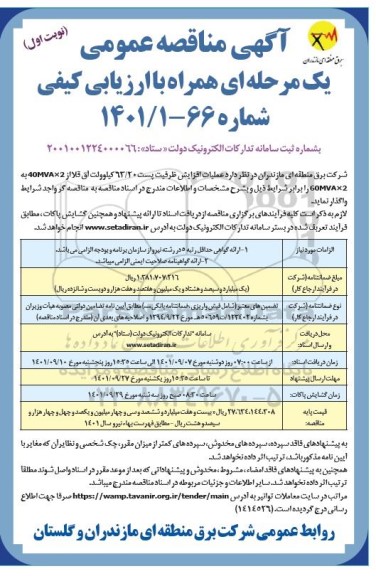 (نوبت اول)
برق منطقه ای مازندران
آگهی مناقصه عمومی
یک مرحله ای همراه با ارزیابی کیفی
شماره ۶۶-۱۴۰۱/۱
بشماره ثبت سامانه تدارکات الکترونیک دولت «ستاد»: ۲۰۰۱۰۰۱۲۲۴۰۰۰۰۶۶
شرکت برق منطقه ای مازندران در نظر دارد عملیات افزایش ظرفیت پست ۶۳/۲۰ کیلوولت آق قلا از 40MVA×2 به
60MVA×2 را برابر شرایط ذیل و بشرح مشخصات و اطلاعات مندرج در اسناد مناقصه به مناقصه گر واجد شرایط
واگذار نماید.
لازم به ذکر است کلیه فرآیندهای برگزاری مناقصه از دریافت اسناد تا ارائه پیشنهاد و همچنین گشایش پاکات، مطابق
فرآیند تعریف شده در بستر سامانه تدارکات الکترونیک دولت به آدرس www.setadiran.ir انجام خواهد شد.
الزامات مورد نیاز
۱-ارائه گواهی حداقل رتبه ۵ در رشته نیرو از سازمان برنامه و بودجه الزامی می باشد.
۲-ارائه گواهینامه صلاحیت ایمنی الزامی میباشد.
مبلغ ضمانتنامه (شرکت در فرآیند ارجاع کار)
۱،۳۸۱،۷۰۷،۲۱۶ ریال
(یک میلیارد و سیصد و هشتاد و یک میلیون و هفتصد و هفت هزار و دویست و شانزده ریال)
نوع ضمانتنامه (شرکت در فرآیند ارجاع کار)
تضمین های معتبر (شامل فیش واریزی، ضمانتنامه بانکی و...) مطابق آیین نامه تضامین دولتی مصوبه هیأت وزیران
محل دریافت و ارسال اسناد:
سامانه "تدارکات الکترونیک دولت (ستاد)" به آدرس www.setadiran.ir
زمان دریافت اسناد:
از ساعت ۰۷:۰۰ روز دوشنبه مورخ ۱۴۰۱/۰۹/۰۷ الی ساعت ۱۵:۳۵ روز پنجشنبه مورخ ۱۴۰۱/۰۹/۱۰
مهلت ارسال پیشنهاد
تا ساعت ۱۵:۳۵ روز یکشنبه مورخ ۱۴۰۱/۰۹/۲۷
زمان گشایش پاکات:
۰۸:۳۰ صبح روز سه شنبه مورخ ۱۴۰۱/۰۹/۲۹
قیمت پایه مناقصه:
۲۷،۶۳۴،۱۴۴،۳۰۸ ریال = بیست و هفت میلیارد و ششصد و سی و چهار میلیون و یکصد و چهل و چهار هزار و
سیصد و هشت ریال - مطابق فهرست بهاء نیرو سال ۱۴۰۱
به پیشنهادهای فاقد سپرده، سپرده های مخدوش، سپرده های کمتر از میزان مقرر، چک شخصی و نظایر آن که مغایر با
آیین نامه مذکور باشد، ترتیب اثر داده نخواهد شد.
همچنین به پیشنهادهای فاقد امضاء، مشروط، مخدوش و پیشنهاداتی که بعد از موعد مقرر در اسناد واصل شوند مطلقاً
ترتیب اثر داده نخواهد شد. سایر اطلاعات و جزئیات مربوطه در اسناد مناقصه مندرج میباشد.
مراتب در سایت معاملات توانیر به آدرس https://wamp.tavanir.org.ir/tender/main صرفا جهت اطلاع
رسانی درج گردیده است. (۱۴۱۴۵۲۶)
روابط عمومی شرکت برق منطقه ای مازندران و گلستان